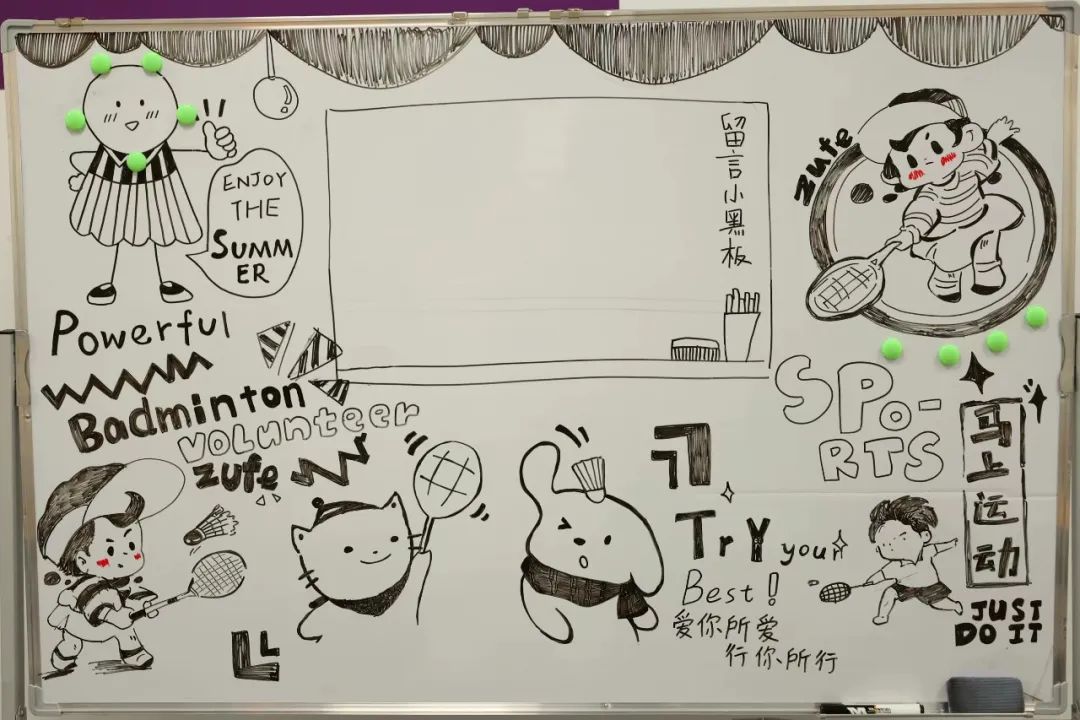 ENJOY
THE
SUMM
ER
留言小黑板
zufe
Powerful
Badminton
VOLunteer
zufe
SPO-
RTS
马上运动
Try your
Best!
爱你所爱
行你所行
JUST
DO IT
M